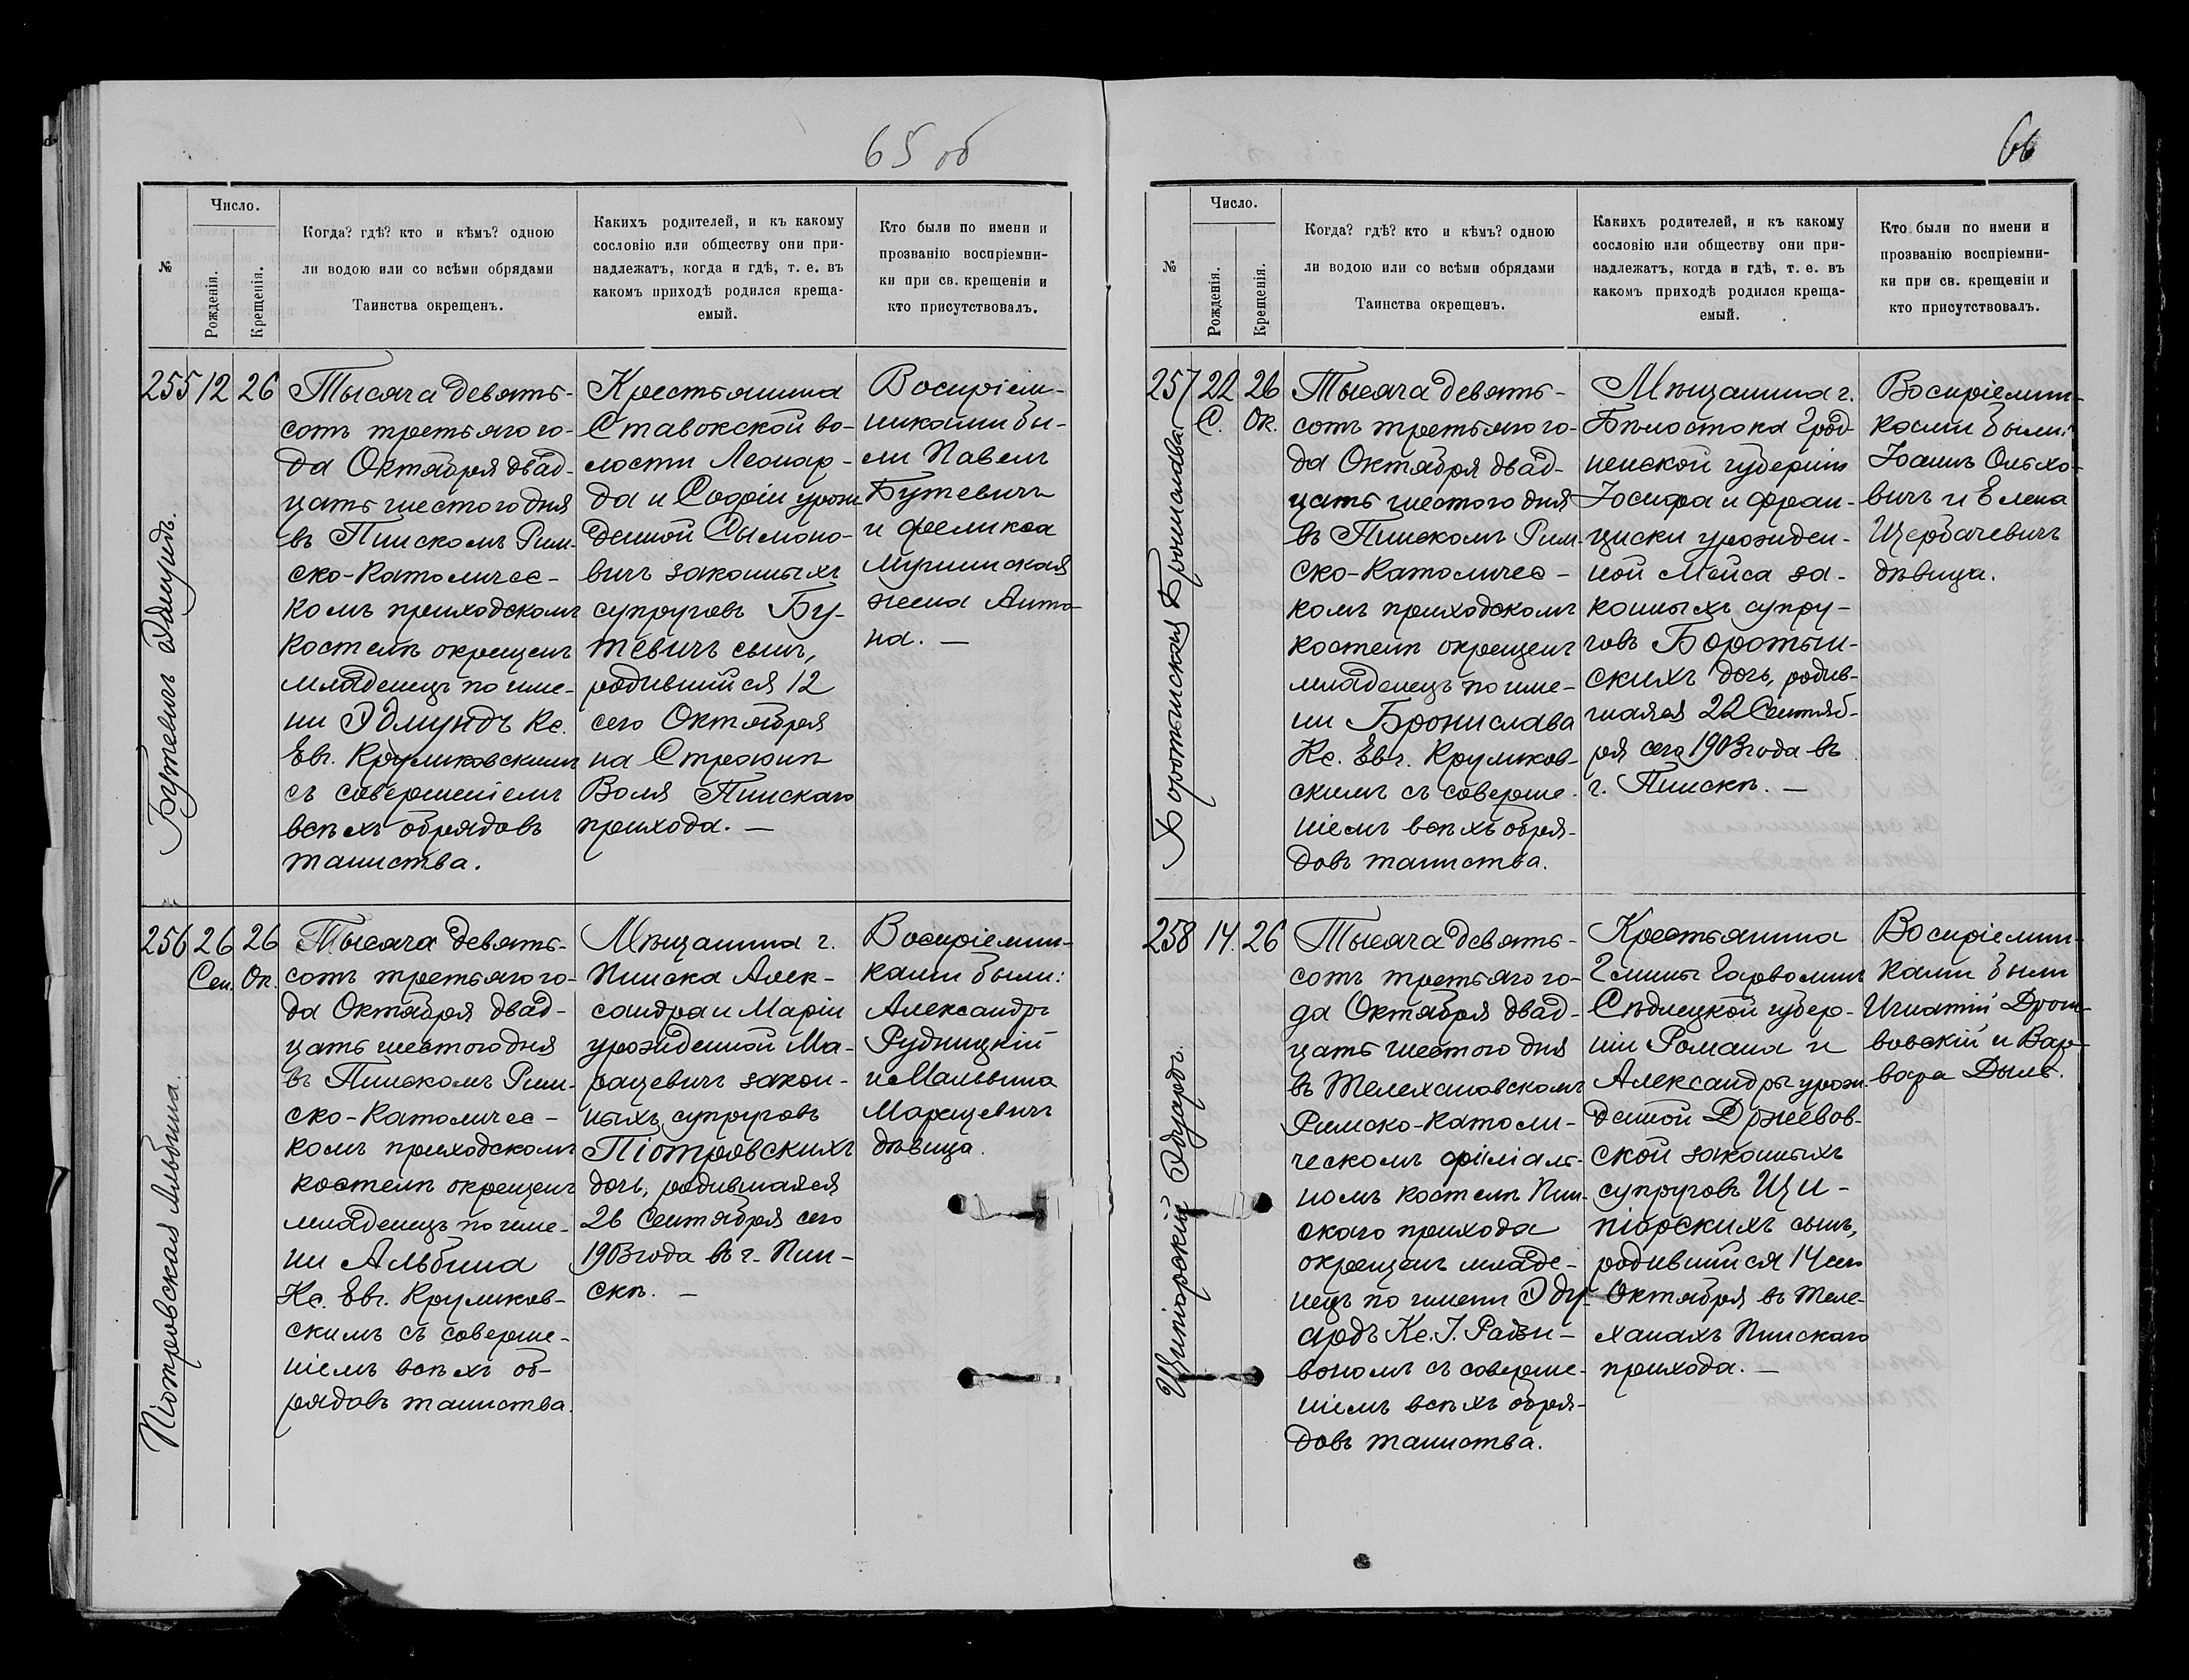 65 об
№
Число.
Рожденія.
Крещенія.
Когда? гдѣ? кто и кѣмъ? одною
ли водою или со всѣми обрядами
Таинства окрещенъ.
Каких родителей, и къ какому
сословію или обществу они при-
надлежатъ, когда и гдѣ, т. е. въ
какомъ приходѣ родился креща-
емый.
Кто были по имени и
прозванію воспріемни-
ки при св. крещеніи и
кто присутствовалъ.
255 12 26
Бутевичъ Эдмундъ.
Тысяча девять-
сотъ третьяго го-
да Октября двад-
цать шестого дня
въ Пинскомъ Рим-
ско-Католичес-
комъ приходскомъ
костелѣ окрещенъ
младенецъ по име-
ни Эдмундъ Кс.
Евг. Круликовскимъ
съ совершеніемъ
всѣхъ обрядовъ
таинства.
Крестьянина
Ставокской во-
лости Леонар-
да и Софіи урож-
денной Сымоно-
вичъ законныхъ
супруговъ Бу-
тевичъ сынъ,
родившійся 12
сего Октября
на
Воля Пинскаго
прихода. —
Воспріем-
никами бы-
ли Павелъ
Бутевичъ
и Фелікса
жена Анто-
на. —
256 26 26
Сен. Ок.
Піотровская Альбина.
Тысяча девять-
сотъ третьяго го-
да Октября двад-
цать шестого дня
въ Пинскомъ Рим-
ско-Католичес-
комъ приходскомъ
костелѣ окрещенъ
младенецъ по име-
ни Альбина
Кс. Евг. Круликов-
скимъ съ соверше-
ніемъ всѣхъ об-
рядовъ таинства.
Мѣщанина г.
Пинска Алек-
сандра и Маріи
урожденной Ма-
рацевичъ закон-
ныхъ супруговъ
Піотровскихъ
дочь, родившаяся
26 Сентября сего
1903 года въ г. Пин-
скѣ. —
Воспріемни-
ками были:
Александръ
Рудницкій
и Мальвина
Марацевичъ
дѣвица.
66
№
Число.
Рожденія.
Крещенія.
Когда? гдѣ? кто и кѣмъ? одною
ли водою или со всѣми обрядами
Таинства окрещенъ.
Какихъ родителей, и къ какому
сословію или обществу они при-
надлежатъ, когда и гдѣ, т. е. въ
какомъ приходѣ родился креща-
емый.
Кто были по имени и
прозванію воспріемни-
ки при св. крещеніи и
кто присутствовалъ.
257 22 26
С. Ок.
Боротынская Бронислава.
Тысяча девять-
сотъ третьяго го-
да Октября двад-
цать шестого дня
въ Пинскомъ Рим-
ско-Католичес-
комъ приходскомъ
костелѣ окрещенъ
младенецъ по име-
ни Бронислава
Кс. Евг. Круликов-
скимъ съ соверше-
ніемъ всѣхъ обря-
довъ таинства.
Мѣщанина г.
Бѣлостока Грод-
ненской губерніи
Іосифа и Фран-
циски урожден-
ной за-
конныхъ супру-
говъ Боротын-
скихъ дочь, родив-
шаяся 22 Сентяб-
ря сего 1903 года въ
г. Пинскѣ. —
Воспріемни-
ками были:
Іоаннъ Ольхо-
вичъ и Елена
Щербачевичъ
дѣвица.
258 14. 26
Щипіорскій Эдуардъ.
Тысяча девять-
сотъ третьяго го-
да Октября двад-
цать шестого дня
въ Телехановскомъ
Римско-Католи-
ческомъ филіаль-
номъ костелѣ Пин-
скаго прихода
окрещенъ младе-
нецъ по имени Эду-
ардъ Кс. І. Радзи-
вономъ съ соверше-
ніемъ всѣхъ обря-
довъ таинства.
Крестьянина
Гмины Гарволинъ
Сѣдлецкой губер-
ніи Романа и
Александры урож-
денной Држевов-
ской законныхъ
супруговъ Щи-
піорскихъ сынъ,
родившійся 14 сего
Октября въ Теле-
ханахъ Пинскаго
прихода. —
Воспріемни-
ками были
Игнатій
и Вар-
вара Дыль.